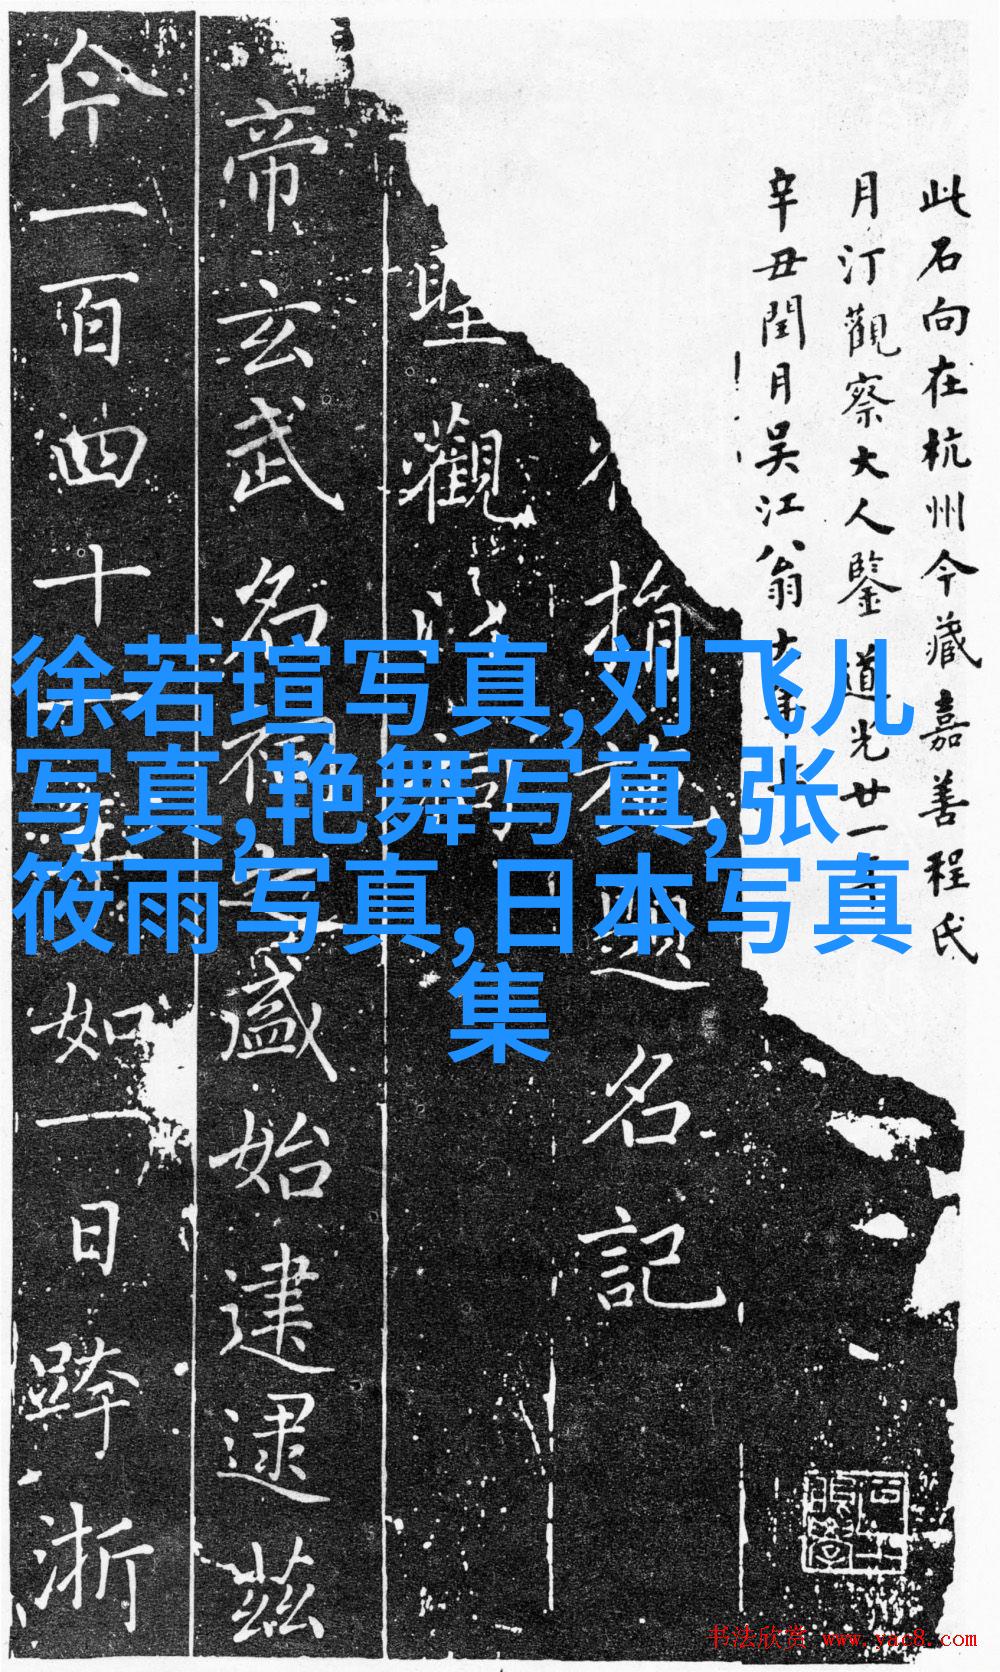 此石向在杭州今藏嘉善程氏
月汀觀察大人鑒 道光廿一年
辛丑閏月吳江翁大年
指
題名記
聖觀
帝玄武名
盛始建逮茲
仐一百四十
如一日跨浙
徐若瑄写真,刘飞儿
写真,艳舞写真,张
筱雨写真,日本写真
集
书法欣赏 www.yac8.com